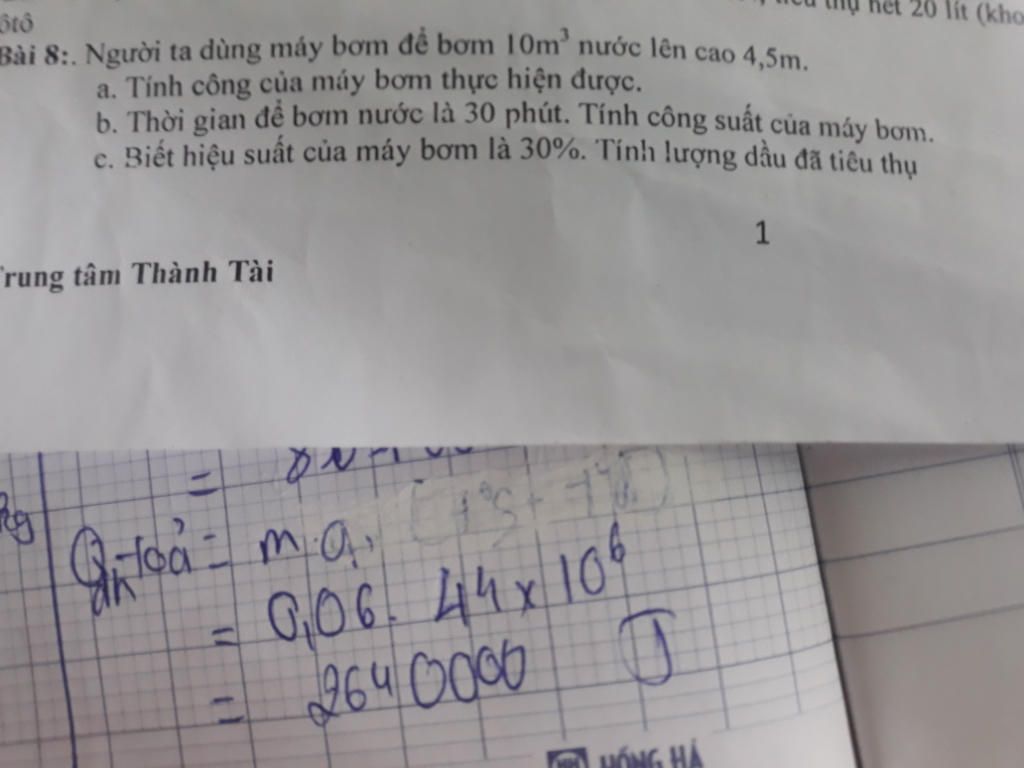 ôtô
hết 20 lít (kho
Bài 8:. Người ta dùng máy bơm để bơm 10m³ nước lên cao 4,5m.
a. Tính công của máy bơm thực hiện được.
b. Thời gian để bơm nước là 30 phút. Tính công suất của máy bơm.
c. Biết hiệu suất của máy bơm là 30%. Tính lượng dầu đã tiêu thụ
1
Trung tâm Thành Tài
=
kg
Q toả = m.q.
dh
= 0,06. 44 x 10⁶
= 2640000 J
HỒNG HÀ